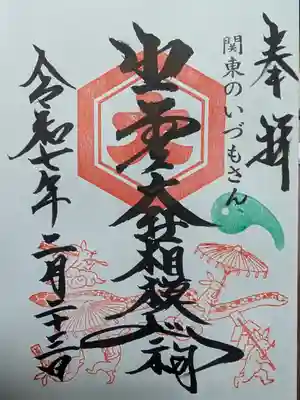 奉拝
関東のいづもさん
出雲大社相模分祠
令和七年二月二十三日